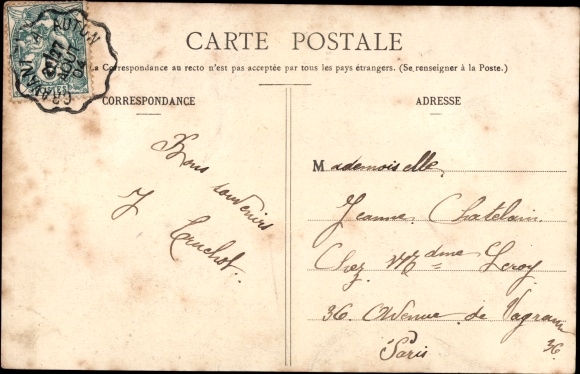 CRAVANT A AUTUN
2E
17
AOUT
04
CARTE POSTALE
La Correspondance au recto n'est pas acceptée par tous les pays étrangers. (Se renseigner à la Poste.)
CORRESPONDANCE
Bons souvenirs
J Cruchot.
ADRESSE
Mademoiselle
Jeanne Chatelain
Chez Mdme Leroy
36. Avenue de Vagram
36.
Paris